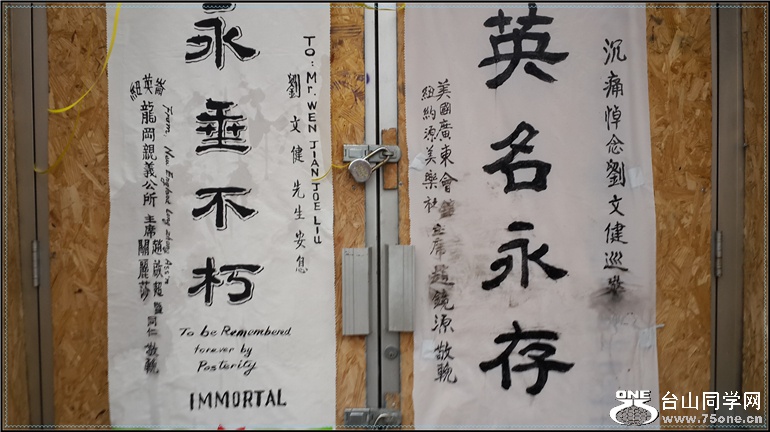 沉痛悼念劉文健巡警
英名永存
美國廣東會暨
紐約源美樂社
主席趙鏡源敬輓
TO: Mr. WEN JIAN JOE LIU
劉文健先生安息
永垂不朽
To be Remembered
forever by
Posterity
IMMORTAL
From: New England Lung Kong Ass'n
紐英崙龍岡親義公所主席
關麗莎
暨同仁敬輓
ONE
台山同学网
www.75one.cn